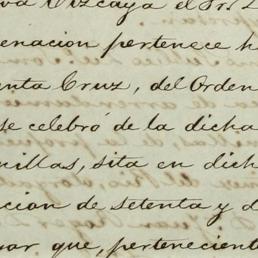 Vizcaya el
enacion pertenece h
nta Cruz, del Orden
se celebró de la dicha
nillas, sita en dich
cion de setenta y d
que, pertenecient